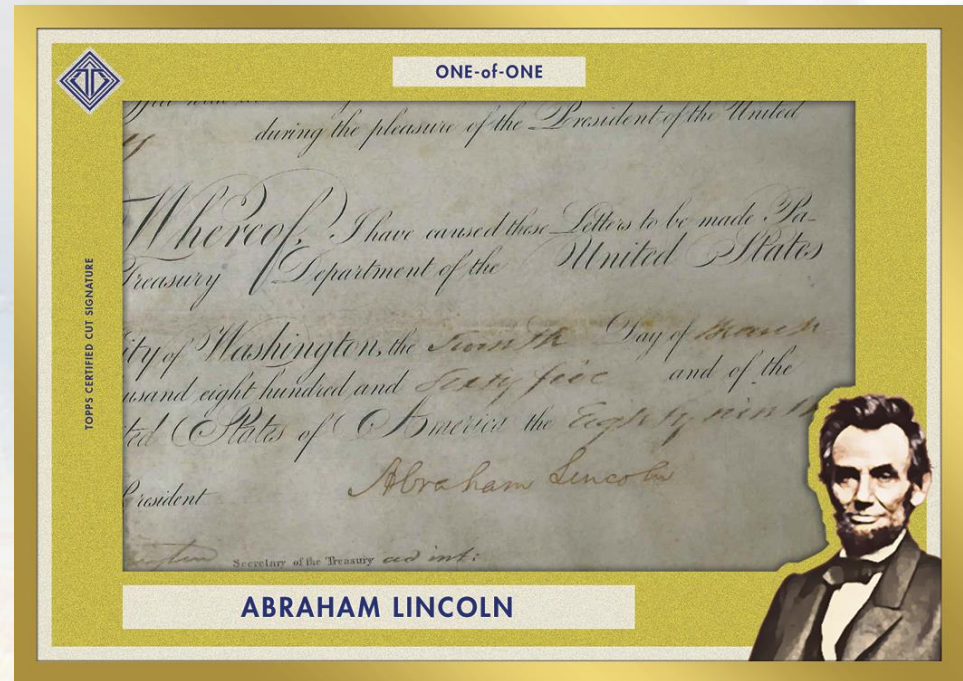 ONE-of-ONE
during the pleasure of the President of the United
Whereof, I have caused these Letters to be made Pa-
Treasury Department of the United States
ity of Washington, the Day of March
usand eight hundred and Sixty five and of the
ted States of America the Eighty ninth
Abraham Lincoln
resident
Secretary of the Treasury ad int:
TOPPS CERTIFIED CUT SIGNATURE
ABRAHAM LINCOLN